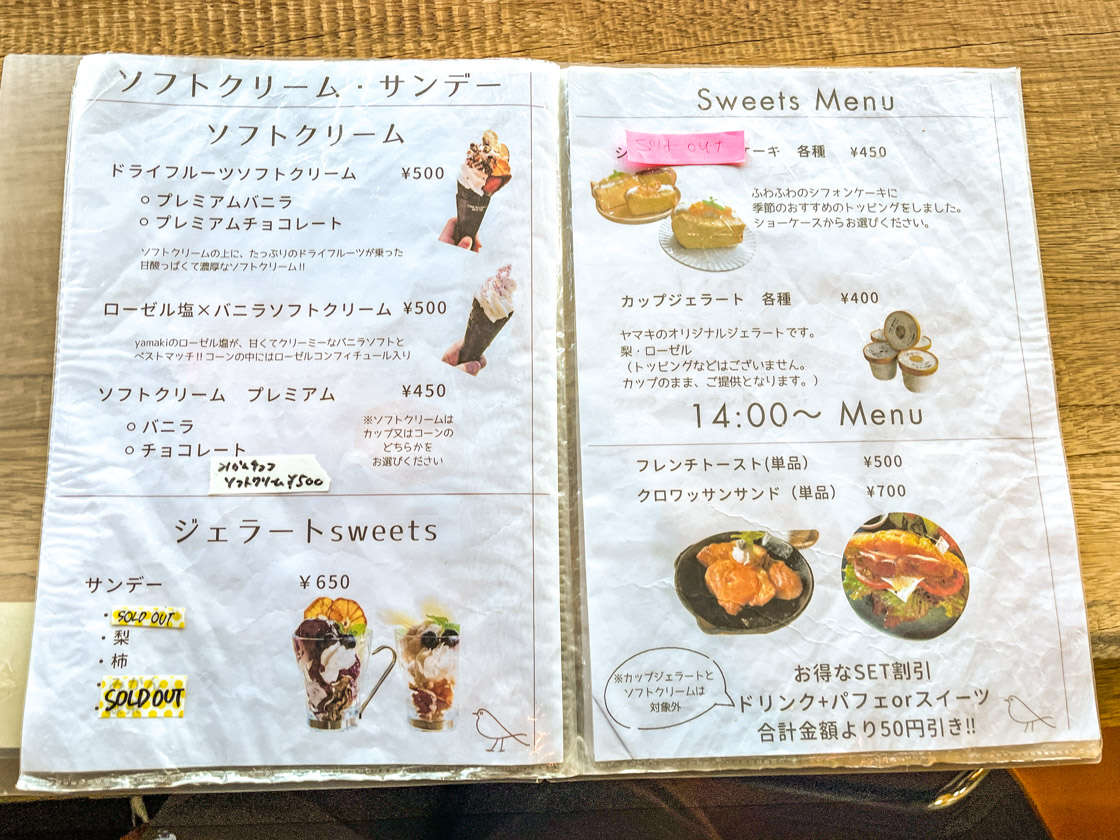 ソフトクリーム・サンデー
ソフトクリーム
ドライフルーツソフトクリーム ¥500
○ プレミアムバニラ
○ プレミアムチョコレート
ソフトクリームの上に、たっぷりのドライフルーツが乗った
甘酸っぱくて濃厚なソフトクリーム!!
ローゼル塩×バニラソフトクリーム ¥500
yamakiのローゼル塩が、甘くてクリーミーなバニラソフトと
ベストマッチ!! コーンの中にはローゼルコンフィチュール入り
ソフトクリーム プレミアム ¥450
○ バニラ
○ チョコレート
※ソフトクリームは
カップ又はコーンの
どちらかを
お選びください
ソフトクリーム¥500
ジェラートsweets
サンデー ¥650
・SOLD OUT
・梨
・柿
・SOLD OUT
Sweets Menu
シ Sold out ケーキ 各種 ¥450
ふわふわのシフォンケーキに
季節のおすすめのトッピングをしました。
ショーケースからお選びください。
カップジェラート 各種 ¥400
ヤマキのオリジナルジェラートです。
梨・ローゼル
（トッピングなどはございません。
カップのまま、ご提供となります。）
14:00〜 Menu
フレンチトースト(単品) ¥500
クロワッサンサンド（単品） ¥700
※カップジェラートと
ソフトクリームは
対象外
お得なSET割引
ドリンク+パフェorスイーツ
合計金額より50円引き!!